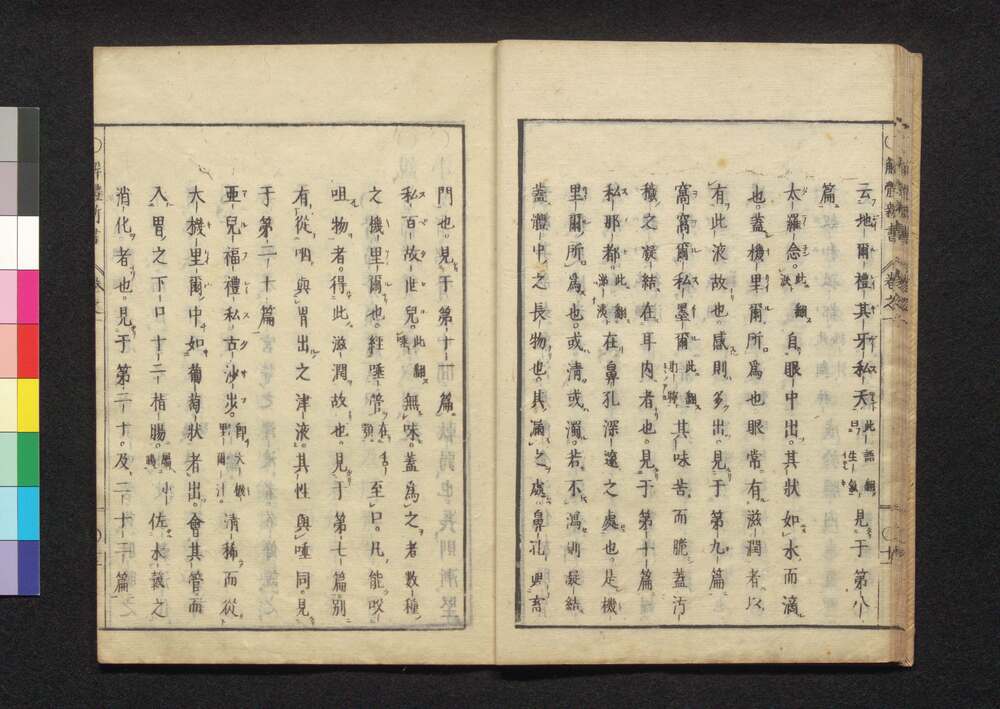 云地爾禮其牙私天此語翻曰生氣見于第八
篇
太羅念此翻淚自眼中出其狀如水而滴
也蓋機里爾所爲也眼常有滋潤者以
有此液故也感則多出見于第九篇
窩窩爾私墨爾此翻耵聹其味苦而脆蓋汚
穢之凝結在耳内者也見于第十篇
私那都此翻涕洟在鼻孔深邃之處也是機
里爾所爲也或清或濁若不瀉則凝結
蓋體中之長物也其漏之處鼻孔與
門也見于第十一篇
私百故世兒此翻唾無味蓋爲之者數種
之機里爾也經唾管在舌至口凡能咬
咀物者得此滋潤故也見于第七篇別
有從咽與胃出之津液其性與唾同見
于第二十篇
亞兒福禮私古沙步卽大機里爾汁清稀而從
大機里爾中如葡萄狀者出會其管而
入胃之下口十二指腸屬小腸佐水穀之
消化者也見于第二十及二十二篇
解體新書
卷之